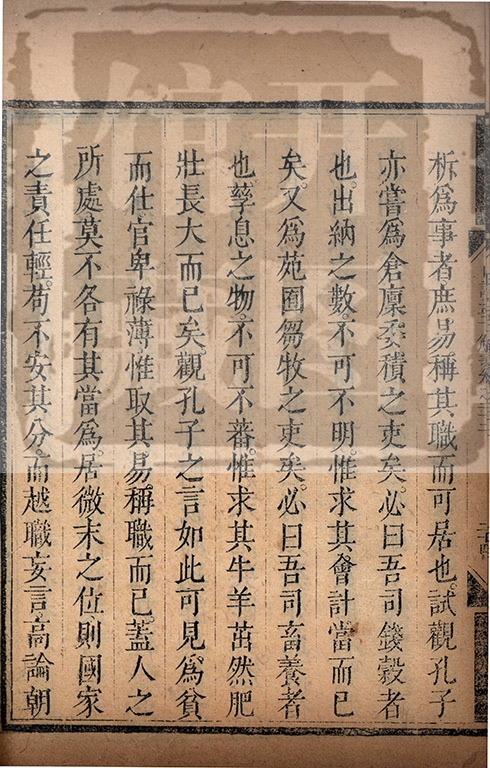 柝爲事者庶易稱其職而可居也。試觀孔子
亦嘗爲倉廩委積之吏矣。必曰吾司錢穀者
也。出納之數。不可不明。惟求其會計當而已
矣。又爲苑囿芻牧之吏矣。必曰吾司畜養者
也。孳息之物。不可不蕃。惟求其牛羊茁然肥
壯長大而已矣觀孔子之言如此可見。爲貧
而仕官卑祿薄惟取其易稱職而已。蓋人之
所處莫不各有其當爲。居微末之位。則國家
之責任輕。苟不安其分。而越職妄言高論朝